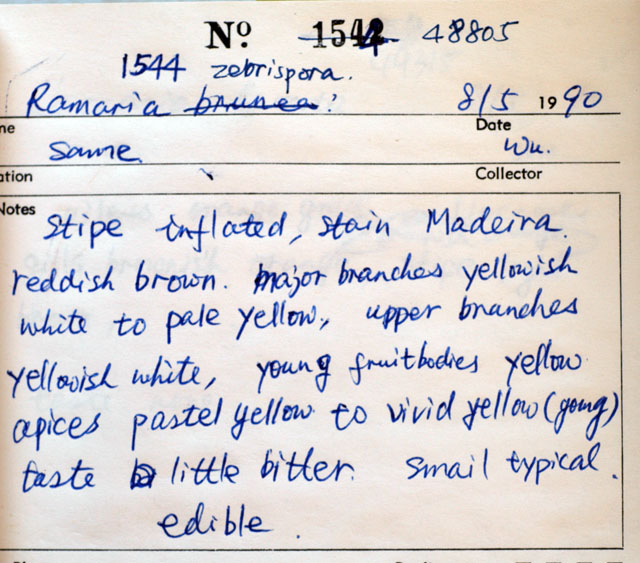 Nº 1542 48805
1544 zebrispora.
Ramaria brunea? 8/5 1990
ne Date
same. Wu.
ation Collector
Notes stipe inflated, stain Madeira.
reddish brown. major branches yellowish
white to pale yellow, upper branches
yellowish white, young fruitbodies yellow
apices pastel yellow to vivid yellow (young)
taste little bitter. smail typical.
edible.